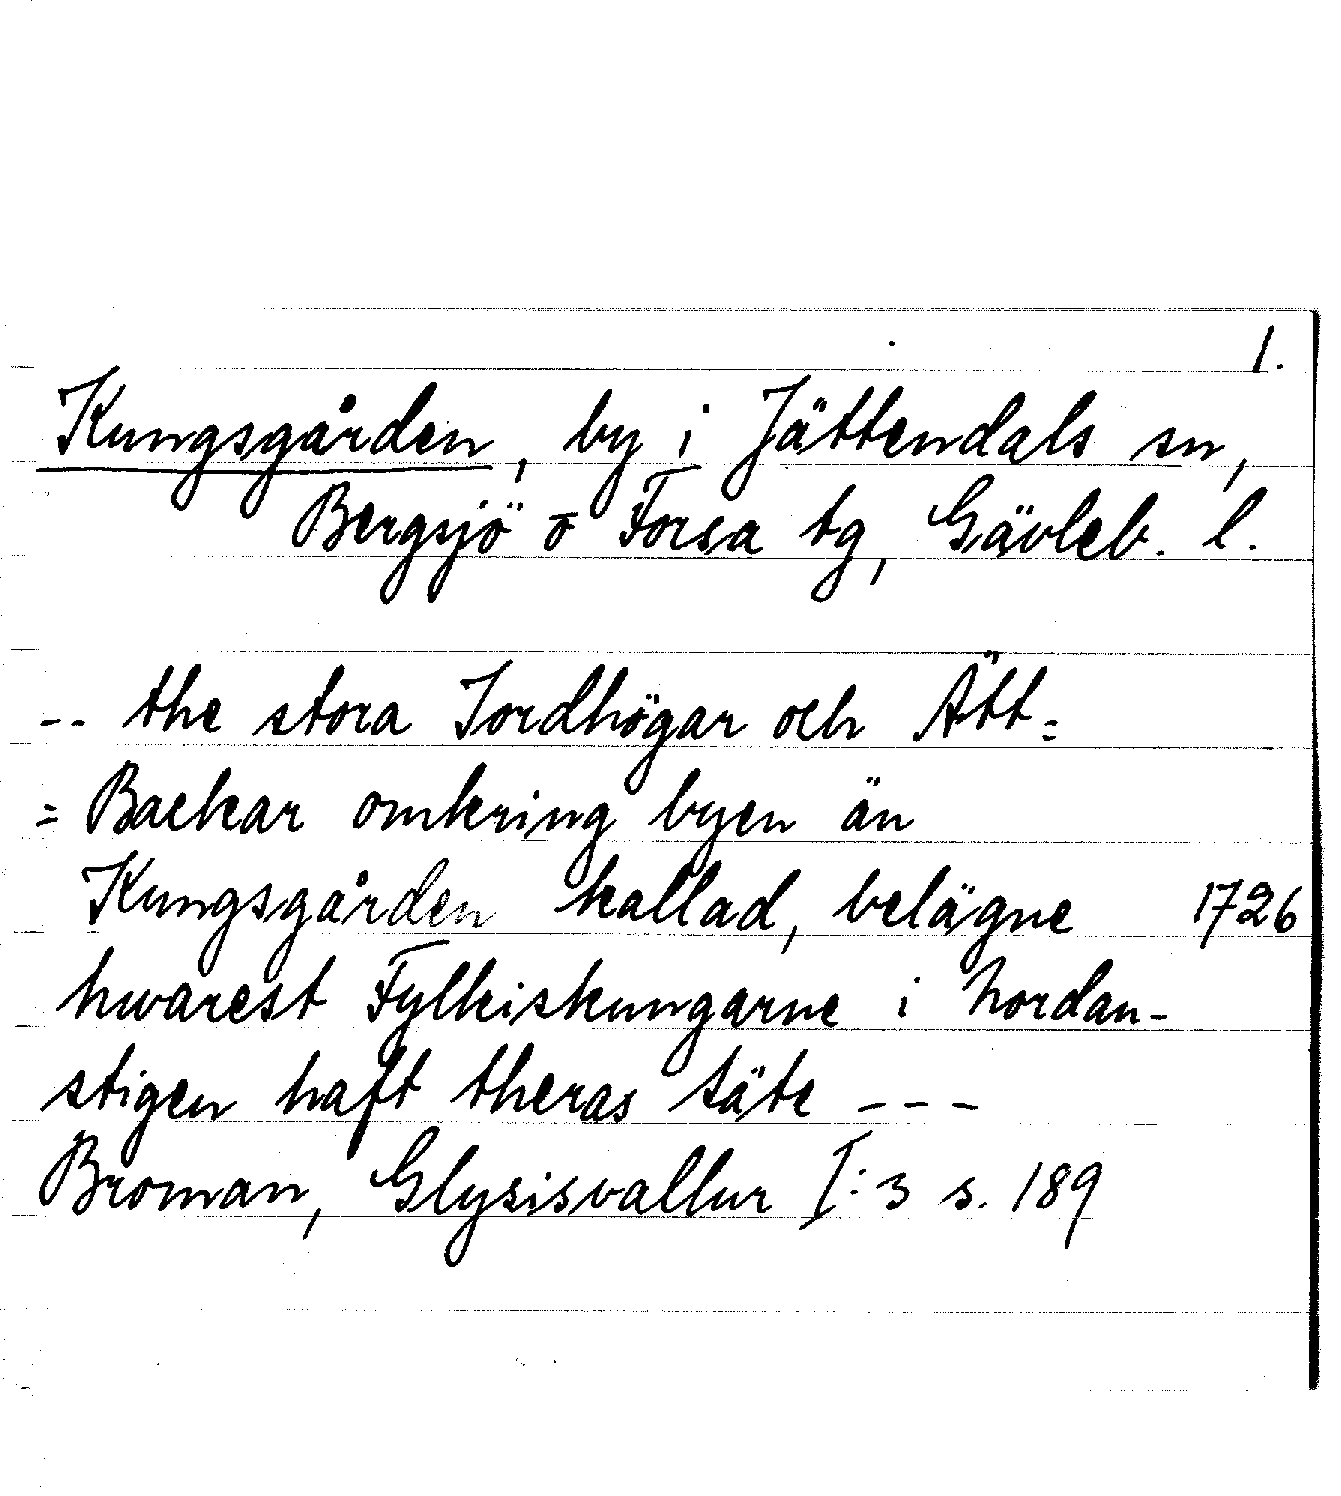 1.
Kungsgården, by i Jättendals sn,
Bergsjö o Forsa tg, Gävleb. l.
-- the stora Jordhögar och Ätt=
=Backar omkring byen än
Kungsgården kallad, belägne 1726
hwarest Fylkiskungarne i Nordan-
stigen haft theras säte ---
Broman, Glysisvallur I:3 s. 189